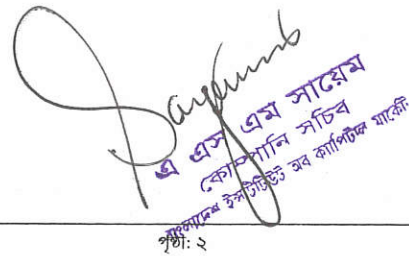 Sayem
এ এস এম সায়েম
কোম্পানি সচিব
বাংলাদেশ ইন্সটিটিউট অব ক্যাপিটাল মার্কেট
পৃষ্ঠা: ২